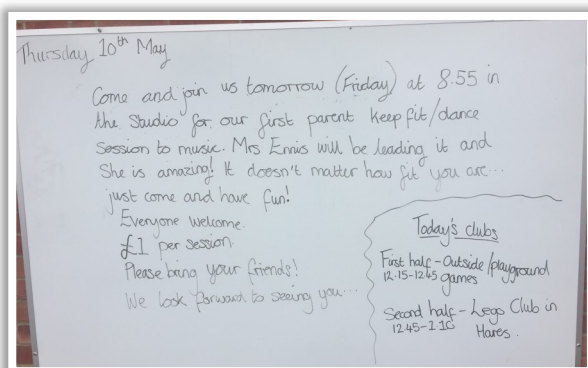 Thursday 10th May
Come and join us tomorrow (Friday) at 8.55 in
the Studio for our first parent keep fit/dance
Session to music. Mrs Ennis will be leading it and
She is amazing! It doesn't matter how fit you are...
just come and have fun!
Everyone welcome.
£1 per session.
Please bring your friends!
We look forward to seeing you...
Today's clubs
First half - Outside/playground
12.15-1245 games
Second half - Lego Club in
1245-1.10 Hares.